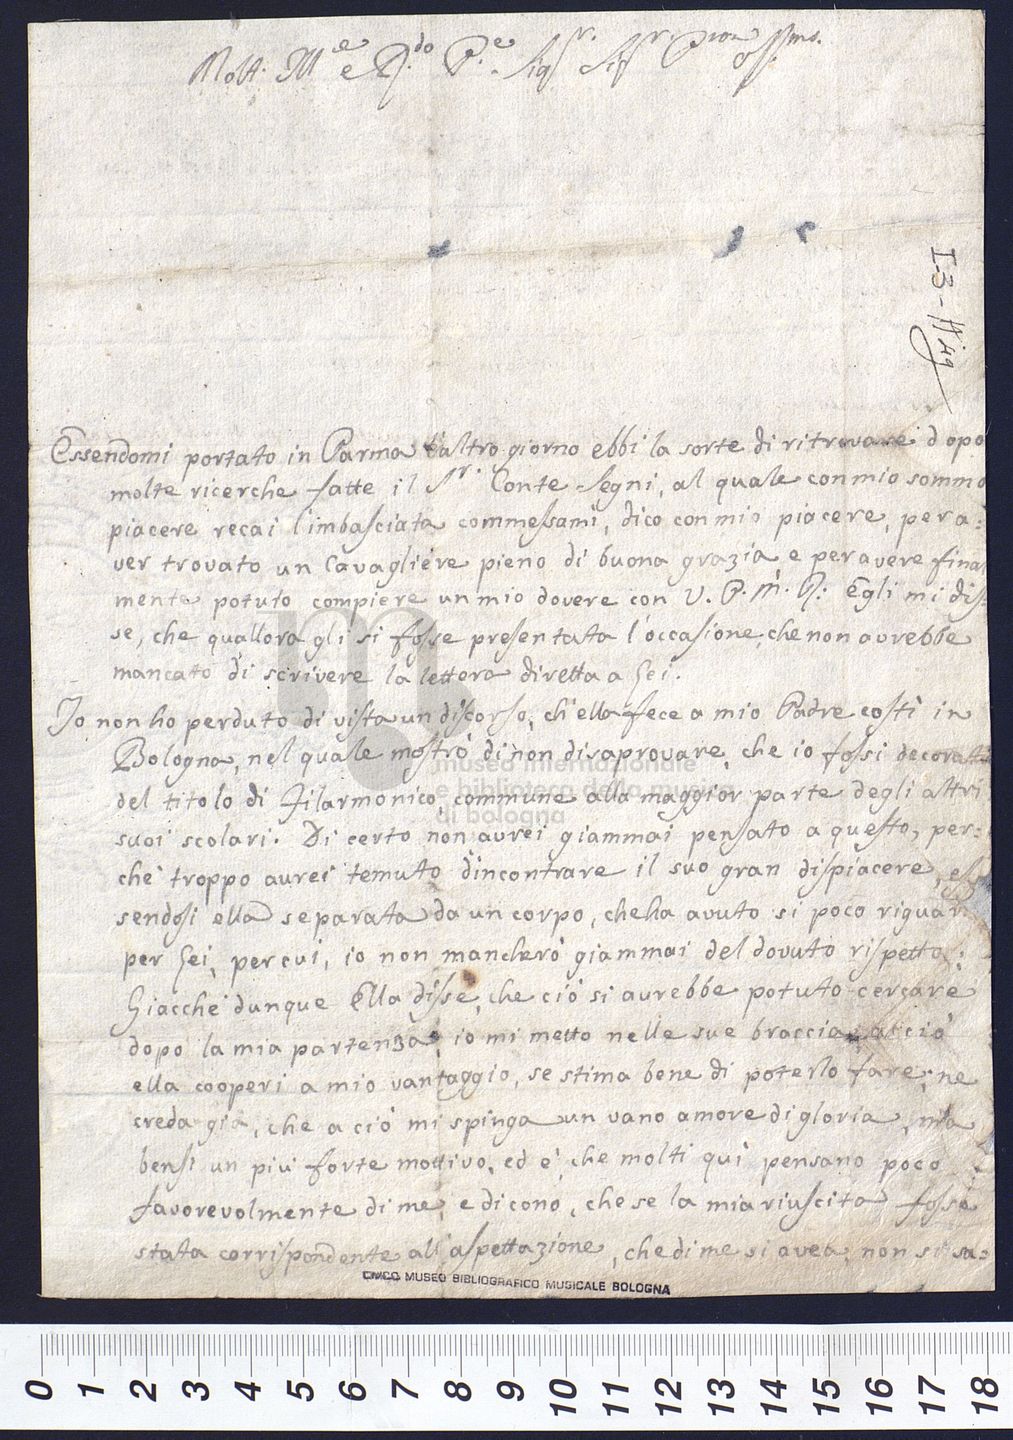 Molt. M.e e R.do P.e Sig.r Sig.r Pron Ossmo.
I-3-
Essendomi portato in Parma l'altro giorno ebbi la sorte di ritrovare dopo
molte ricerche fatte il Sr. Conte Segni, al quale con mio sommo
piacere recai l'imbasciata commessami, dico con mio piacere, per a:
ver trovato un Cavagliere pieno di buona grazia e per avere final
mente potuto compiere un mio dovere con V. P. M. R: Egli mi dis:
se, che quallora gli si fosse presentata l'occasione, che non avrebbe
mancato di scrivere la lettera diretta a Lei.
Io non ho perduto di vista un discorso, ch'ella fece a mio Padre costì in
Bologna, nel quale mostrò di non disaprovare, che io fossi decorato
del titolo di Filarmonico, commune alla maggior parte degli altri
suoi scolari. Di certo non avrei giammai pensato a questo, per:
chè troppo avrei temuto d'incontrare il suo gran dispiacere, es
sendosi ella separata da un corpo, che ha avuto si poco riguar
per Lei, per cui, io non mancherò giammai del dovuto rispetto:
Giacchè dunque Ella disse, che ciò si avrebbe potuto cercare
dopo la mia partenza, io mi metto nelle sue braccia, acciò
ella cooperi a mio vantaggio, se stima bene di poterlo fare; ne
creda già, che a ciò mi spinga un vano amore di gloria, ma
bensì un più forte mottivo, ed è, che molti quì pensano poco
favorevolmente di me, e dicono, che se la mia riuscita fosse
stata corrispondente all'aspettazione, che di me si avea, non si sa:
museo internazionale
e biblioteca della musica
di bologna
CIVICO MUSEO BIBLIOGRAFICO MUSICALE BOLOGNA
0 1 2 3 4 5 6 7 8 9 10 11 12 13 14 15 16 17 18